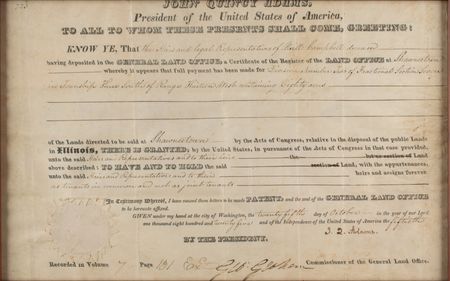 JOHN QUINCY ADAMS,
President of the United States of America,
TO ALL TO WHOM THESE PRESENTS SHALL COME, GREETING:
KNOW YE, That the Heirs and legal Representatives of
having deposited in the GENERAL LAND OFFICE, a Certificate of the Register of the LAND OFFICE at Shawneetown
whereby it appears that full payment has been made for Division Number Four of Fractional Section
in Township Three South of Range Thirteen West containing Eighty acres
of the Lands directed to be sold at Shawneetown by the Acts of Congress, relative to the disposal of the public Lands
in Illinois, THERE IS GRANTED, by the United States, in pursuance of the Acts of Congress in that case provided,
unto the said Heirs and Representatives and to their heirs the section of Land
above described; TO HAVE AND TO HOLD the said section of Land, with the appurtenances,
unto the said Heirs and Representatives and to their heirs and assigns forever.
as tenants in common and not as joint tenants
In Testimony Whereof, I have caused these letters to be made PATENT, and the seal of the GENERAL LAND OFFICE
to be hereunto affixed.
GIVEN under my hand at the city of Washington, the twenty fifth day of October in the year of our Lord
one thousand eight hundred and twenty five and of the Independence of the United States of America the fiftieth
J. Q. Adams.
BY THE PRESIDENT,
Recorded in Volume 7 Page 131 Geo Graham Commissioner of the General Land Office.